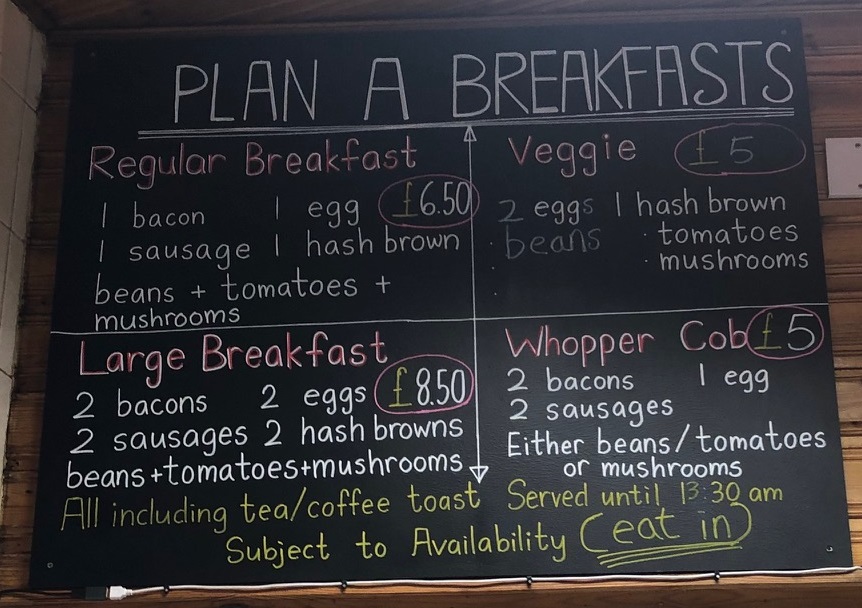 PLAN A BREAKFASTS
Regular Breakfast
£6.50
1 bacon 1 egg
1 sausage 1 hash brown
beans + tomatoes +
mushrooms
Veggie £5
2 eggs 1 hash brown
· beans · tomatoes
· mushrooms
Large Breakfast
£8.50
2 bacons 2 eggs
2 sausages 2 hash browns
beans+tomatoes+mushrooms
Whopper Cob £5
2 bacons 1 egg
2 sausages
Either beans/tomatoes
or mushrooms
All including tea/coffee toast Served until 13:30 am
Subject to Availability (eat in)